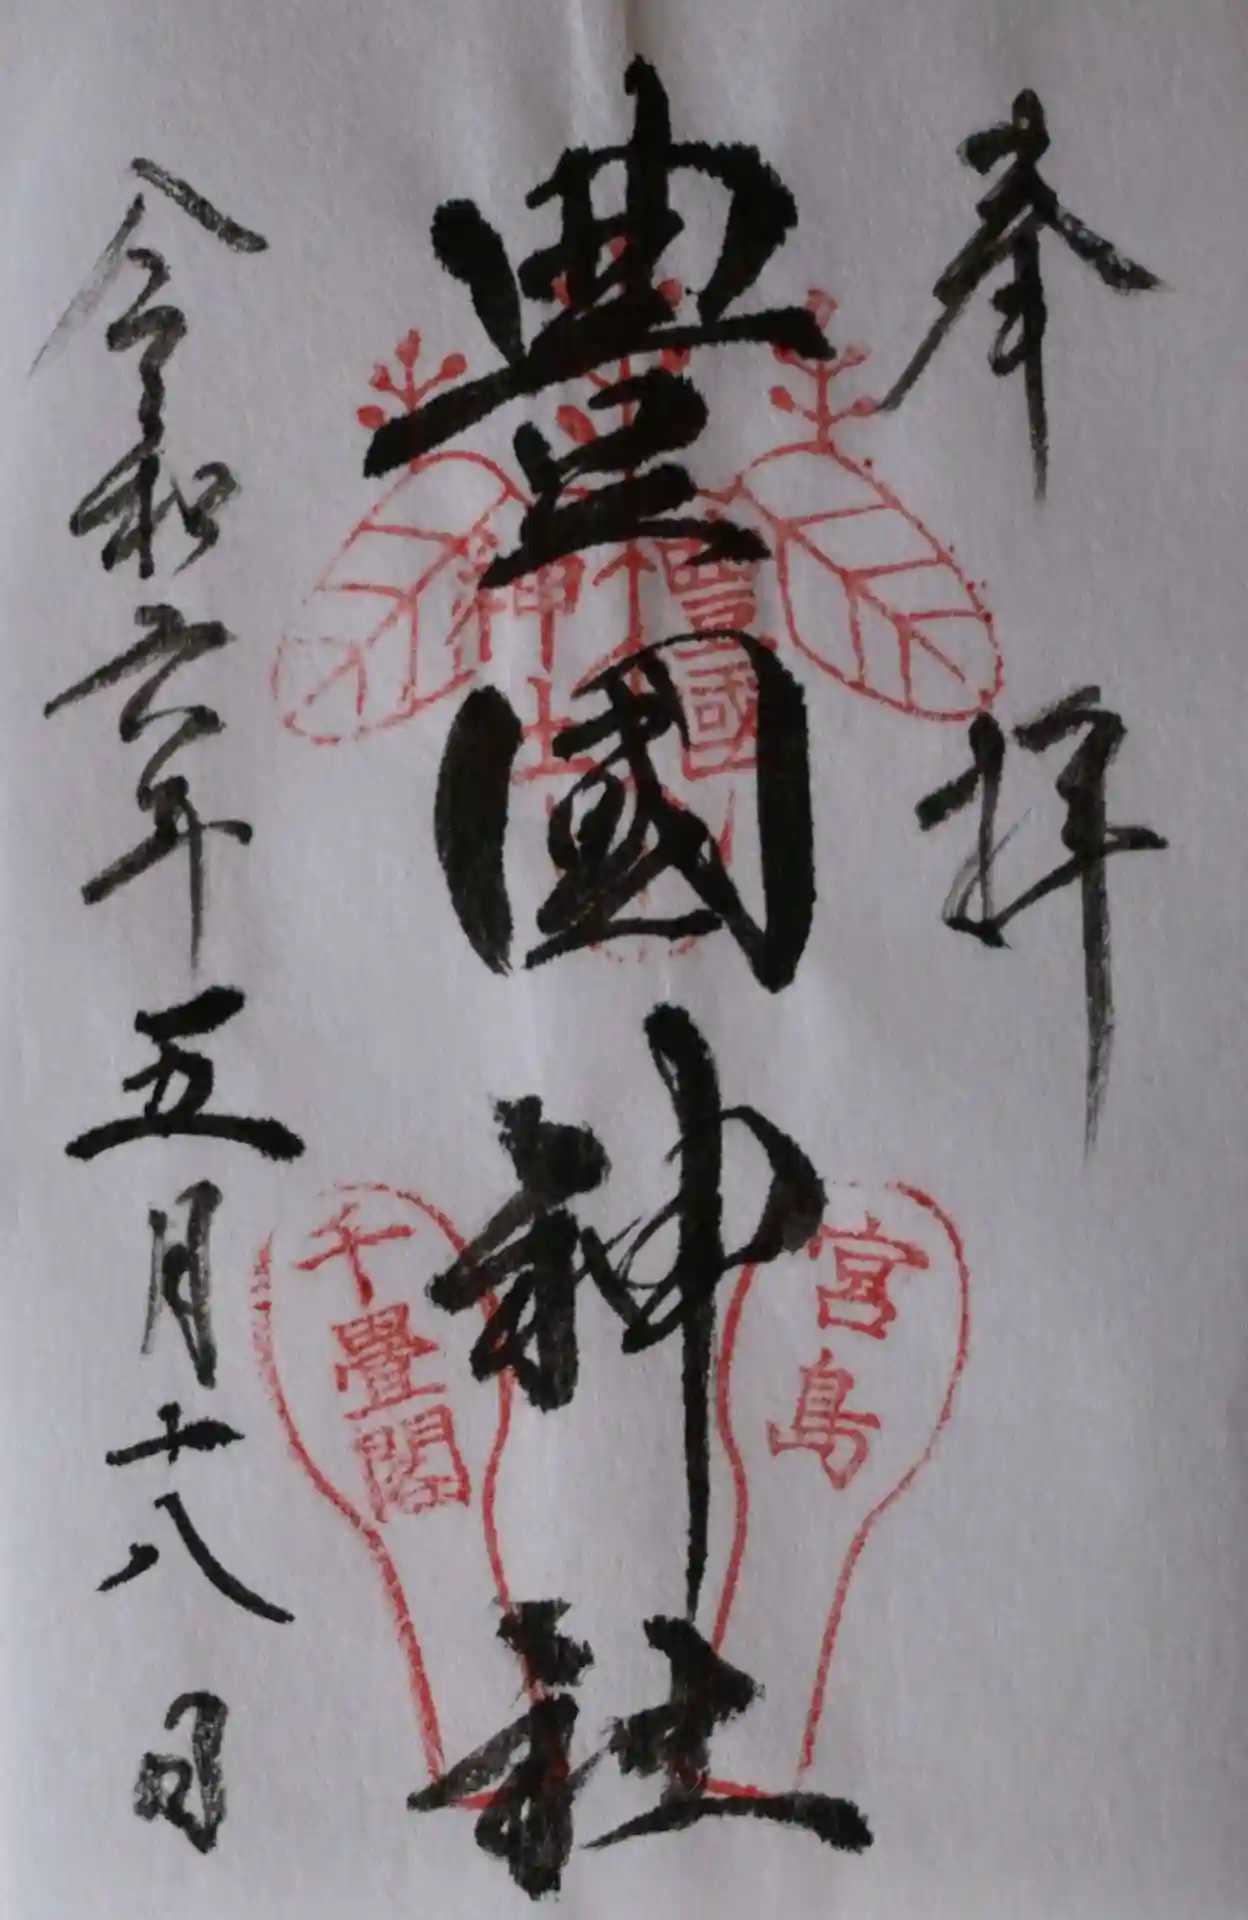 奉拝
豊國神社
豊國
神社
宮島
千畳閣
令和六年五月十八日